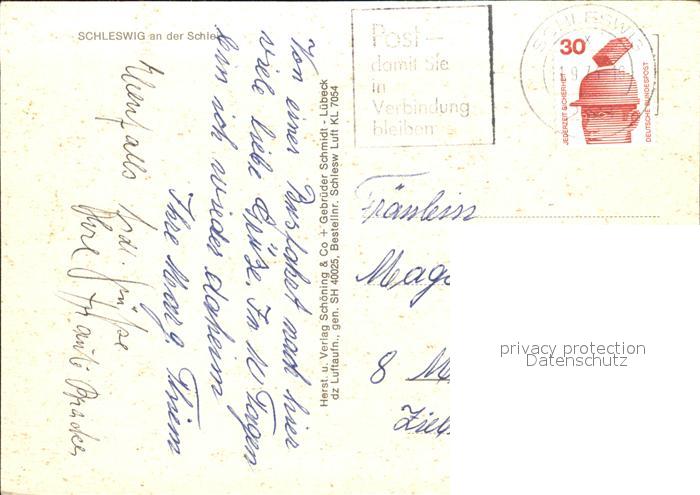 SCHLESWIG an der Schlei
Von einer Busfahrt nach hier
viele liebe Grüße. In 10 Tagen
bin ich wieder daheim
Ihre Marg. Thiem
Ebenfalls frdl. Grüße
Ihre
Herst. u. Verlag Schöning & Co + Gebrüder Schmidt - Lübeck
dz Luftaufn., gen. SH 40025, Bestellnr. Schlesw Luft KL 7054
Post –
damit Sie
in
Verbindung
bleiben
SCHLESWIG
30
JEDERZEIT SICHERHEIT
DEUTSCHE BUNDESPOST
Fräulein
Mag
8 M
Ziel
privacy protection
Datenschutz